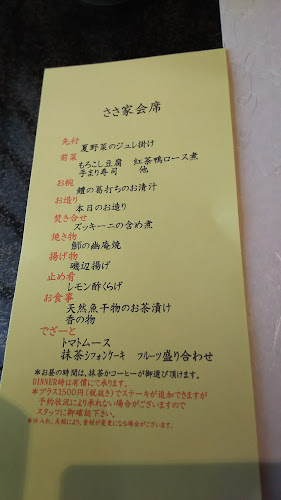 ささ家会席
先付
夏野菜のジュレ掛け
前菜
もろこし豆腐 紅茶鴨ロース煮
手まり寿司 他
お椀
鱧の葛打ちのお清汁
お造り
本日のお造り
焚き合せ
ズッキーニの含め煮
焼き物
鰤の幽庵焼
揚げ物
磯辺揚げ
止め肴
レモン酢くらげ
お食事
天然魚干物のお茶漬け
香の物
でざーと
トマトムース
抹茶シフォンケーキ フルーツ盛り合わせ
*お昼の時間は、抹茶かコーヒーが御選び頂けます。
DINNER時は有償にて承ります。
*プラス1500円(税抜き)でステーキが追加できますが
予約状況により承れない場合がございますので
スタッフに御確認下さい。
*仕入れ、天候により、食材が変更になる場合がございます。